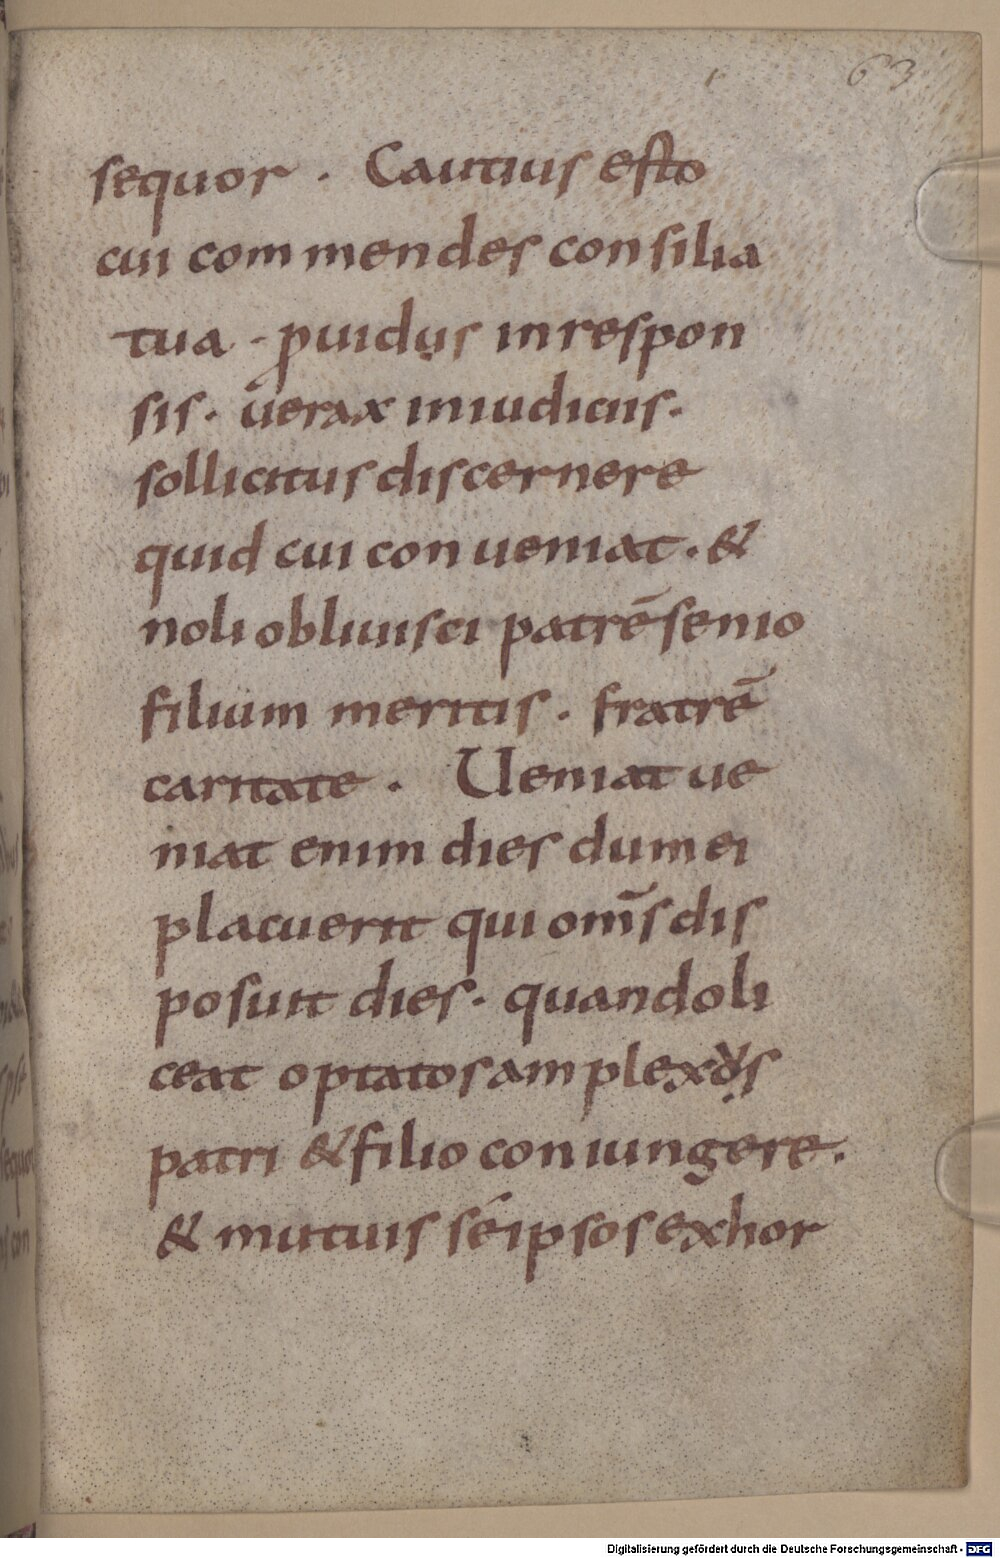 63
sequor . Cautius esto
cui commendes consilia
tua . ꝓuidus in respon
sis . uerax in iudiciis .
sollicitus discernere
quid cui conueniat . &
noli obliuisci patrē senio
filium meritis . fratrē
caritate . Ueniat ue
niat enim dies dum ei
placuerit qui om̄s dis
posuit dies . quando li
ceat optatos amplexus
patri & filio coniungere .
& mutuis séipsos exhor
Digitalisierung gefördert durch die Deutsche Forschungsgemeinschaft - DFG